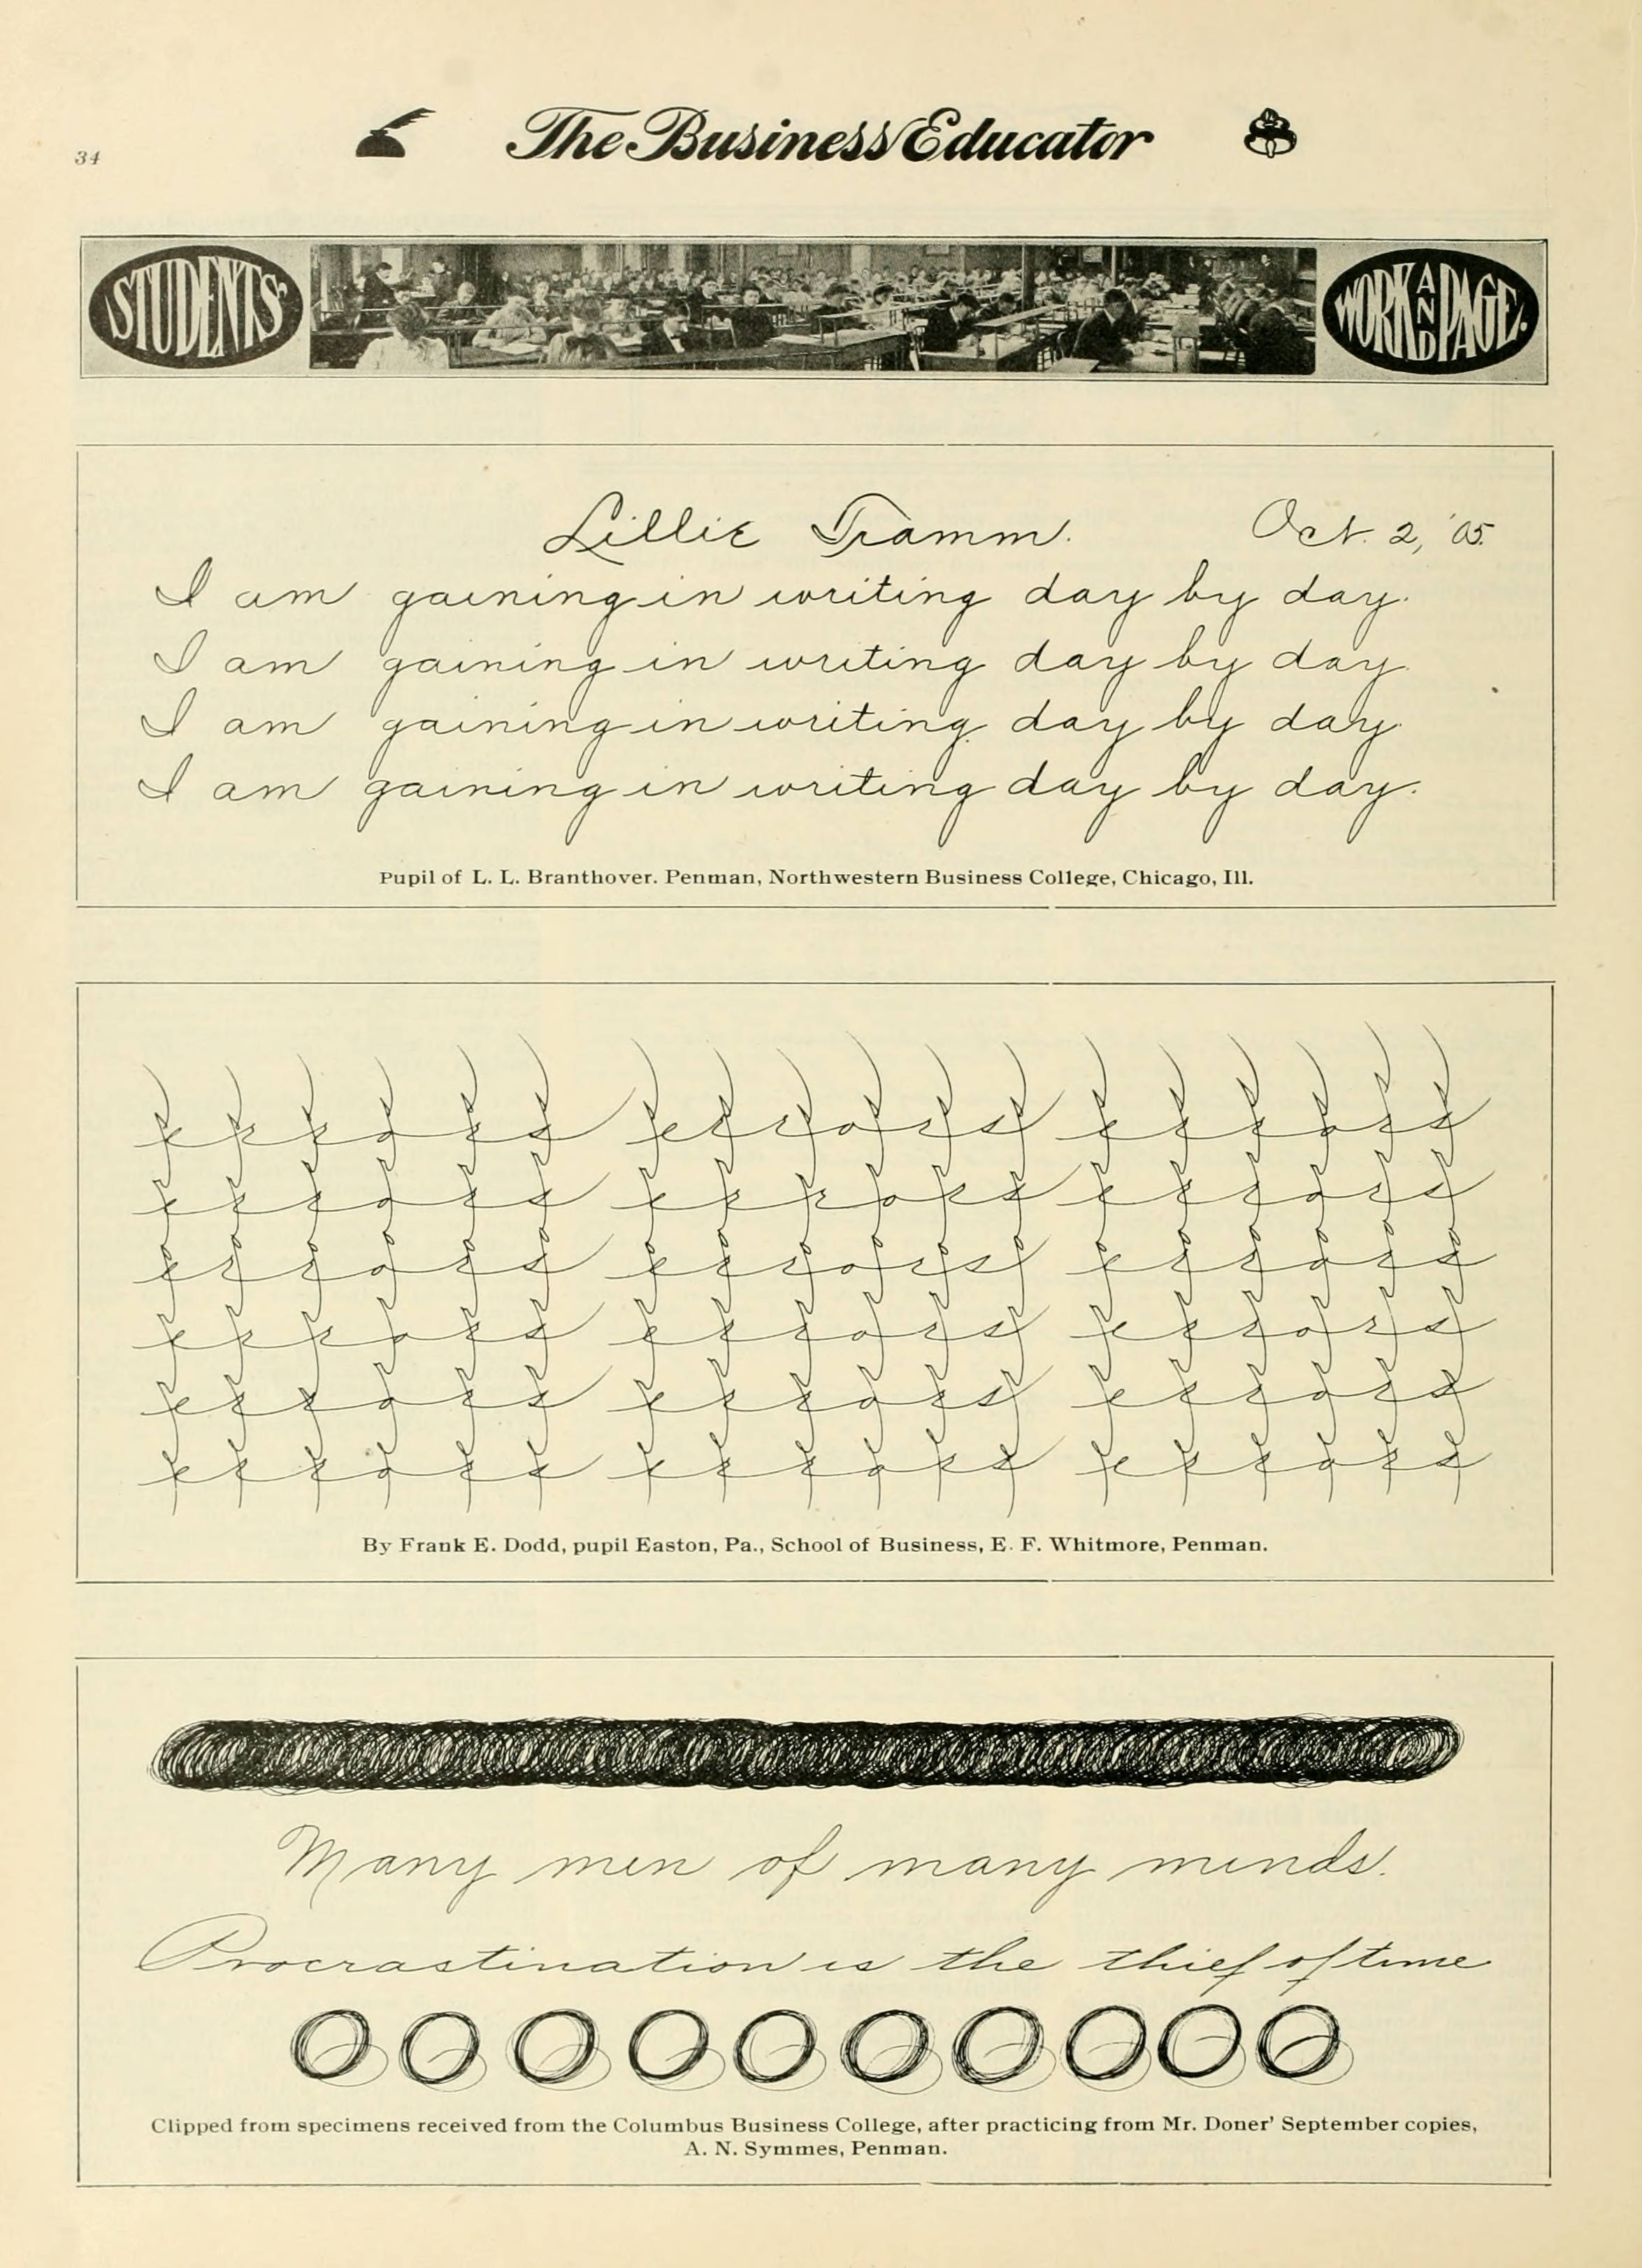 34
The Business Educator
STUDENTS' WORK AND PAGE.
Lillie Tramm. Oct. 2, '05.
I am gaining in writing day by day.
I am gaining in writing day by day.
I am gaining in writing day by day.
I am gaining in writing day by day.
Pupil of L. L. Branthover. Penman, Northwestern Business College, Chicago, Ill.
errors errors errors
errors errors errors
errors errors errors
errors errors errors
errors errors errors
errors errors errors
By Frank E. Dodd, pupil Easton, Pa., School of Business, E. F. Whitmore, Penman.
Many men of many minds.
Procrastination is the thief of time
Clipped from specimens received from the Columbus Business College, after practicing from Mr. Doner' September copies,
A. N. Symmes, Penman.